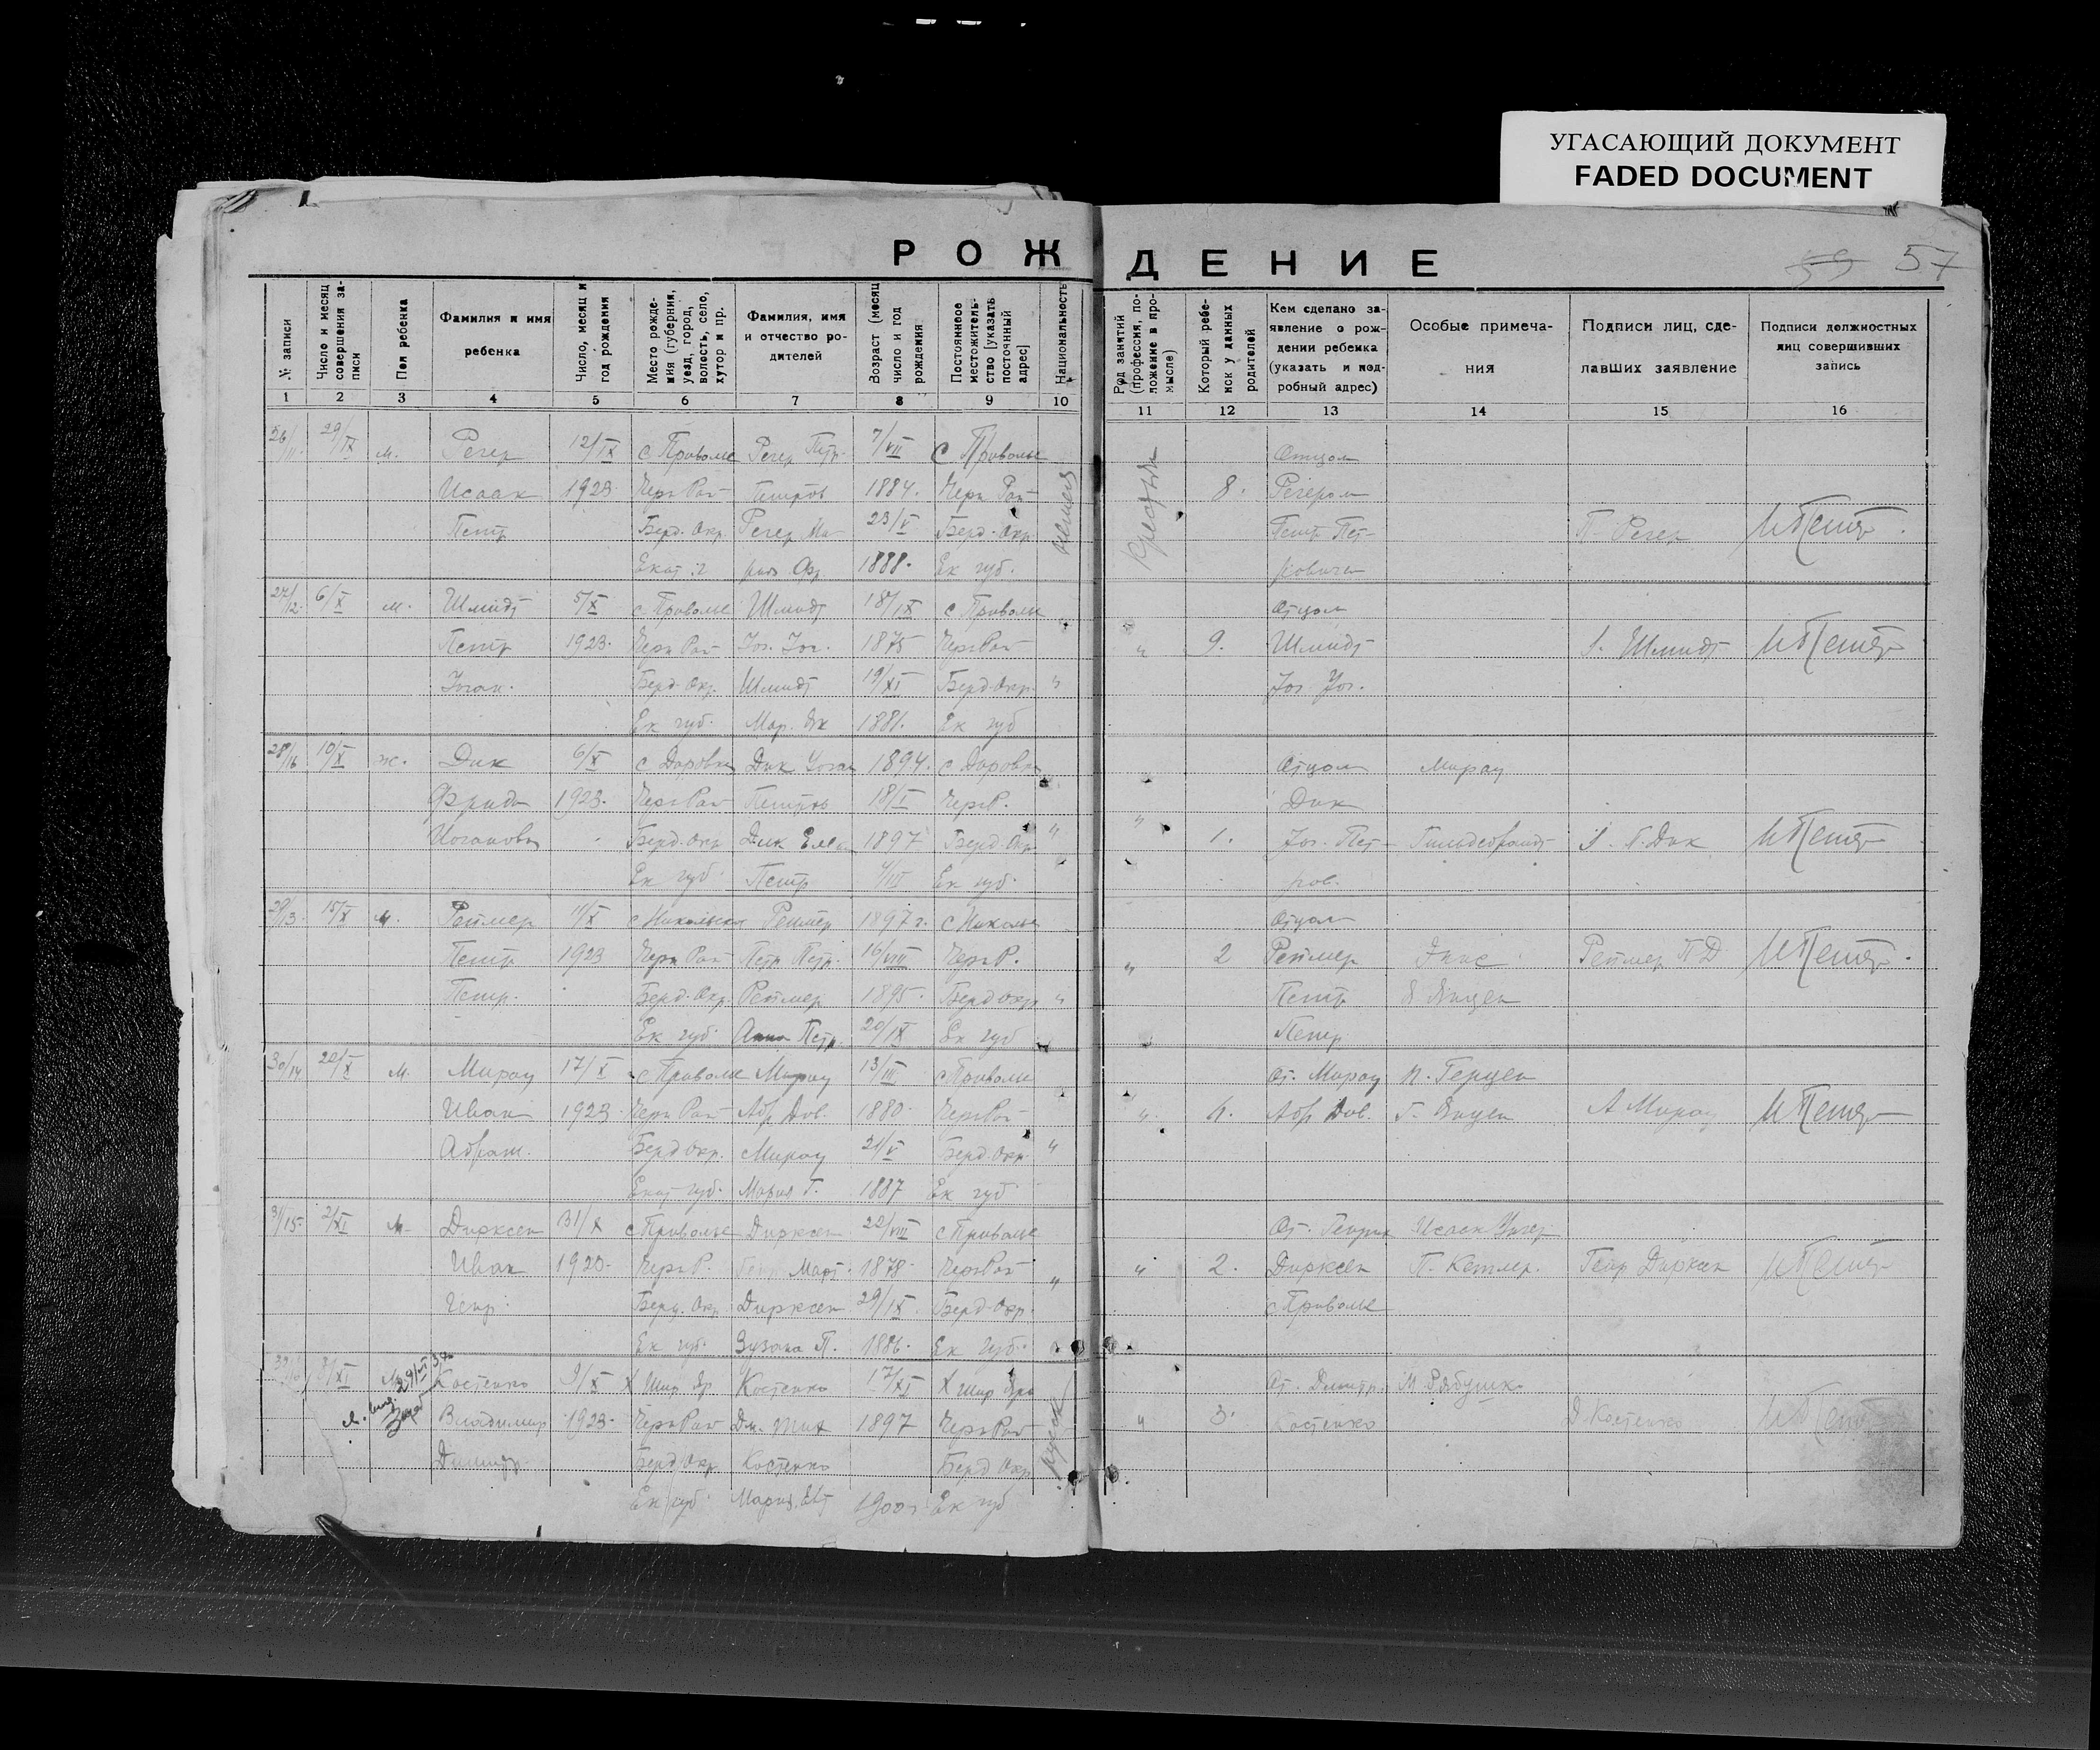 УГАСАЮЩИЙ ДОКУМЕНТ
FADED DOCUMENT
РОЖДЕНИЕ
59 57
№ записи
Число и месяц совершения записи
Пол ребенка
Фамилия и имя ребенка
Число, месяц и год рождения
Место рождения (губерния, уезд, город, волость, село, хутор и пр.
Фамилия, имя и отчество родителей
Возраст (месяц число и год рождения
Постоянное местожительство [указать постоянный адрес]
Национальность
Род занятий (профессия, положение в промысле)
Который ребенок у данных родителей
Кем сделано заявление о рождении ребенка (указать и подробный адрес)
Особые примечания
Подписи лиц, сделавших заявление
Подписи должностных лиц совершивших запись
1 2 3 4 5 6 7 8 9 10 11 12 13 14 15 16
26/11. 29/IX м. Регер 12/IX с Приволье Регер Петр. 7/VII с Приволье Отцом
Исаак 1923 Черн Рай- Петров 1884. Черн Рай- 8. Регером
Петр Берд. Окр. Регер Ма- 23/V Берд. Окр. немец Крестьян Петр Пет- П. Регер
Екат. г 1888. Ек губ. рович
27/12. 6/X м. Шмидт 5/X с Приволье Шмидт 18/IX с Приволье Отцом
Петр 1923. Черн Рай- Іог. Іог. 1875 Черн Рай- " 9. Шмидт І. Шмидт
Иоган. Берд. Окр. Шмидт 19/XI Берд. Окр. " Іог Іог.
Ек губ. Мар. 1881. Ек губ
28/16 10/X ж. Дик 6/X с Доровка Дик Иоган 1894. с Доровка Отцом Мирау
Фрида 1923. Черн Рай- Петров 18/I Черн Р. Дик
Иогановна Берд. Окр Дик Елен 1897 Берд. Окр. " " 1. Іог. Пет- Гильдебрандт І. П. Дик
Ек губ. Петр 4/III Ек губ. ров.
29/13. 15/X м. Реймер 11/X с Никольское Реймер 1897 г. с Николье Отцом
Петр 1923 Черн Рай- Петр Петр. 16/VIII Черн Р. " 2 Реймер Реймер П Д
Петр. Берд. Окр. Реймер 1895. Берд окр " Петр
Ек губ. Анна Петр. 20/IX Ек губ Петр
30/14. 20/X м. Мирау 17/X с Приволье Мирау 13/III с Приволье От. Мирау П. Герцен
Иван 1923. Черн Рай- Абр Дав. 1880. Черн Рай- " 4. Абр Дав. А Мирау
Абрам. Берд Окр. Мирау 21/V Берд. Окр. "
Екат губ. Мария Г. 1887 Ек губ
31/15. 2/XI м. Дирксен 31/X с Приволье Дирксен 22/VIII с Приволье От. Генрих Исаак Унгер
Иван 1923. Черн Р. Март. 1878. Черн Рай- " " 2. Дирксен П. Кетлер. Генр Дирксен
Генр. Берд. Окр Дирксен 29/IX Берд. Окр. с Приволье
Ек губ. Зузана П. 1886. Ек губ.
8/XI Костенко 9/X Костенко 17/XI От. Дмитр. М Рябушко
Владимир 1923. Черн Рай Дм. Мих 1897 Черн Рай " 3. Костенко Д Костенко
Дмитр Берд Окр Костенко Берд Окр
Ек губ. Мария. Евг 1900 г Ек губ